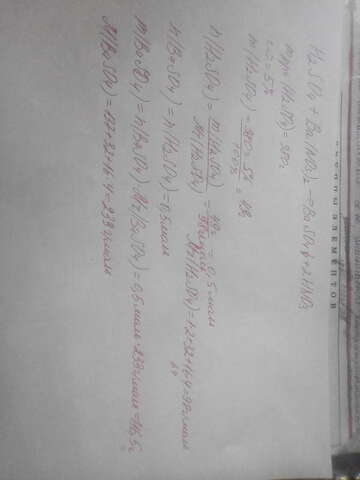 H₂SO₄ + Ba(NO₃)₂ → BaSO₄↓ + 2HNO₃
(H₂SO₄) =
= 5%
m(H₂SO₄) = 5% / 100%
n(H₂SO₄) = m(H₂SO₄) / M(H₂SO₄) = 49г / 98г/моль = 0,5моль
M(H₂SO₄) = 1·2+32+16·4=98г/моль
64
n(BaSO₄) = n(H₂SO₄) = 0,5моль
m(BaSO₄) = n(BaSO₄)·M(BaSO₄) = 0,5моль·233г/моль=116,5г
M(BaSO₄) = 137+32+16·4=233г/моль
ЭЛЕМЕНТОВ